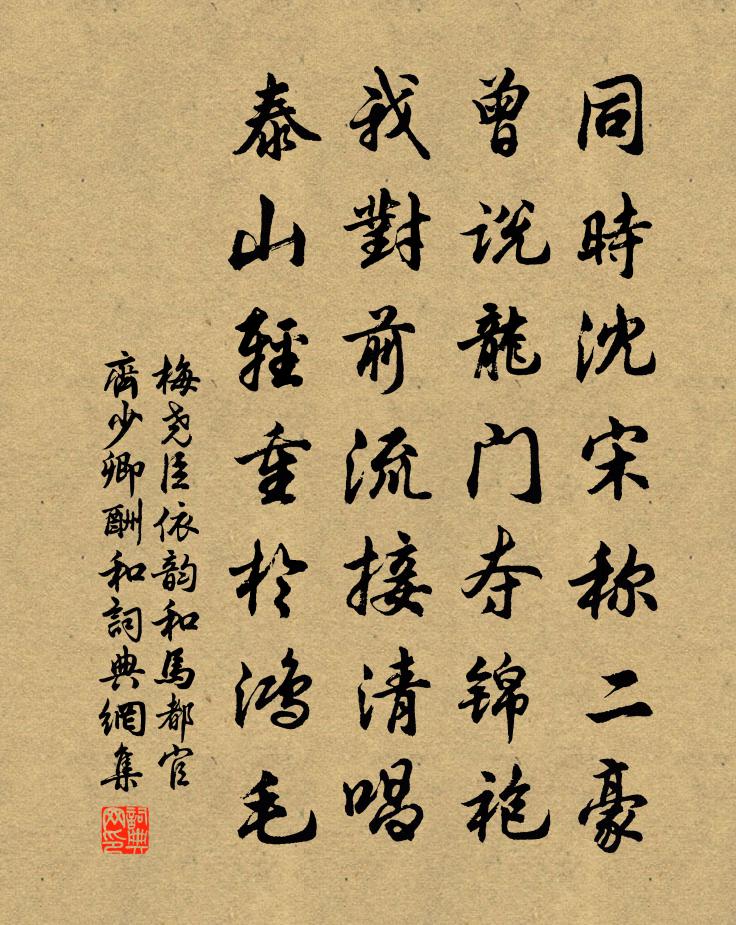 同時沈宋称二豪
曾说龍门夺锦袍
我對前流接清唱
泰山輕重於鸿毛
梅尧臣依韵和馬都官
齊少卿酬和詞典網集
詞典网印